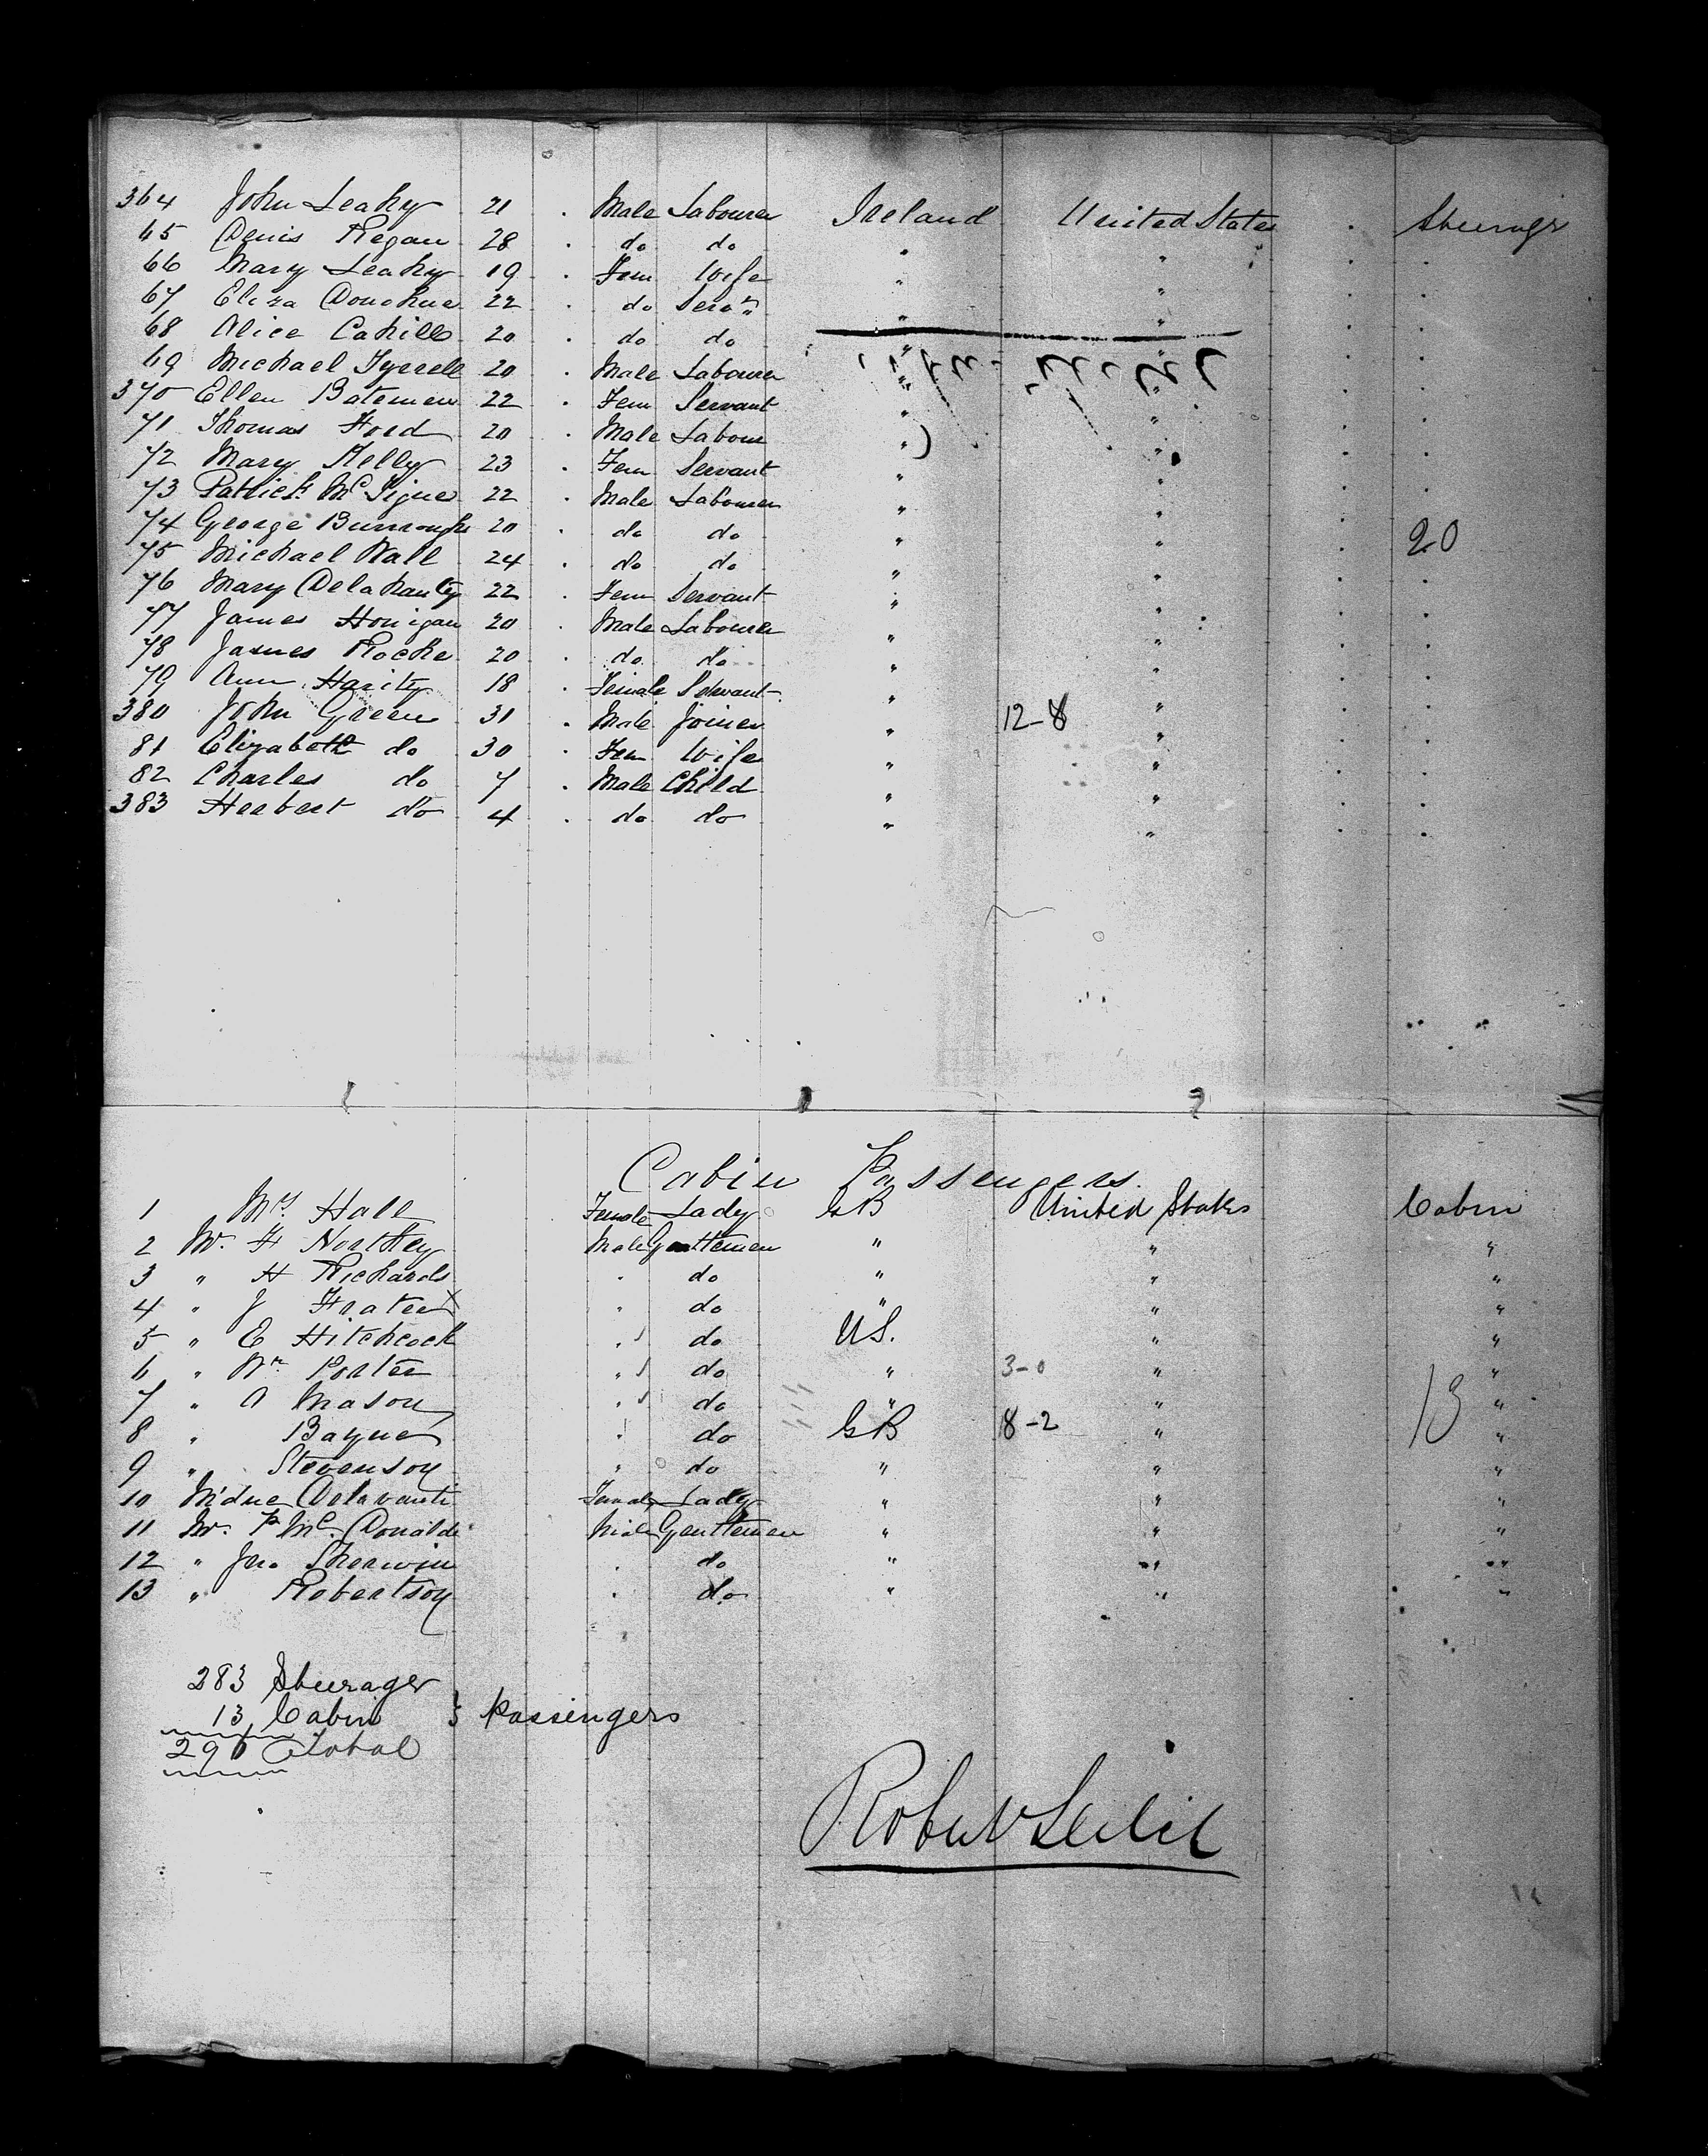 364 John Leahy 21 . Male Labourer Ireland United States . Steerage
65 Denis Regan 28 . do do " " . .
66 Mary Leahy 19 . Fem Wife " " . .
67 Eliza Donohue 22 . do Servt " " . .
68 Alice Cahill 20 . do do " " . .
69 Michael Tyrrell 20 . Male Labourer " " . .
370 Ellen Batemen 22 . Fem Servant " " . .
71 Thomas Ford 20 . Male Labour " " . .
72 Mary Kelly 23 . Fem Servant " " . .
73 Patrick McTigue 22 . Male Labourer " " . .
74 George Burroughs 20 . do do " " . 20
75 Michael Wall 24 . do do " " . .
76 Mary Delahanty 22 . Fem Servant " " . .
77 James Honigan 20 . Male Labourer " " . .
78 James Roche 20 . do do " " . .
79 Ann Harity 18 . Female Servant " " . .
380 John Green 31 . Male Joiner " 12-8 " . .
81 Elizabeth do 30 . Fem Wife " " . .
82 Charles do 7 . Male Child " " . .
383 Herbert do 4 . do do " " . .
Cabin Passengers.
1 Hall Female Lady GB United States Cabin
2 Mr. F Northey Male Gentlemen " " "
3 " H Richards . do " " "
4 " J Frater x . do " " "
5 " E Hitchcock . do US. " "
6 " Wm Porter . do " 3-0 " "
7 " A Mason . do " " " 13
8 " Bayne . do GB 18-2 " "
9 " Stevenson " do " " "
10 Mdme Delavanti Female Lady " " "
11 Mr. P McDonald Male Gentlemen " " "
12 " Jno. Sherwin . do " " "
13 " Robertson . do " " "
283 Steerage
13 Cabin } Passengers
296 Total
Robert Leslie